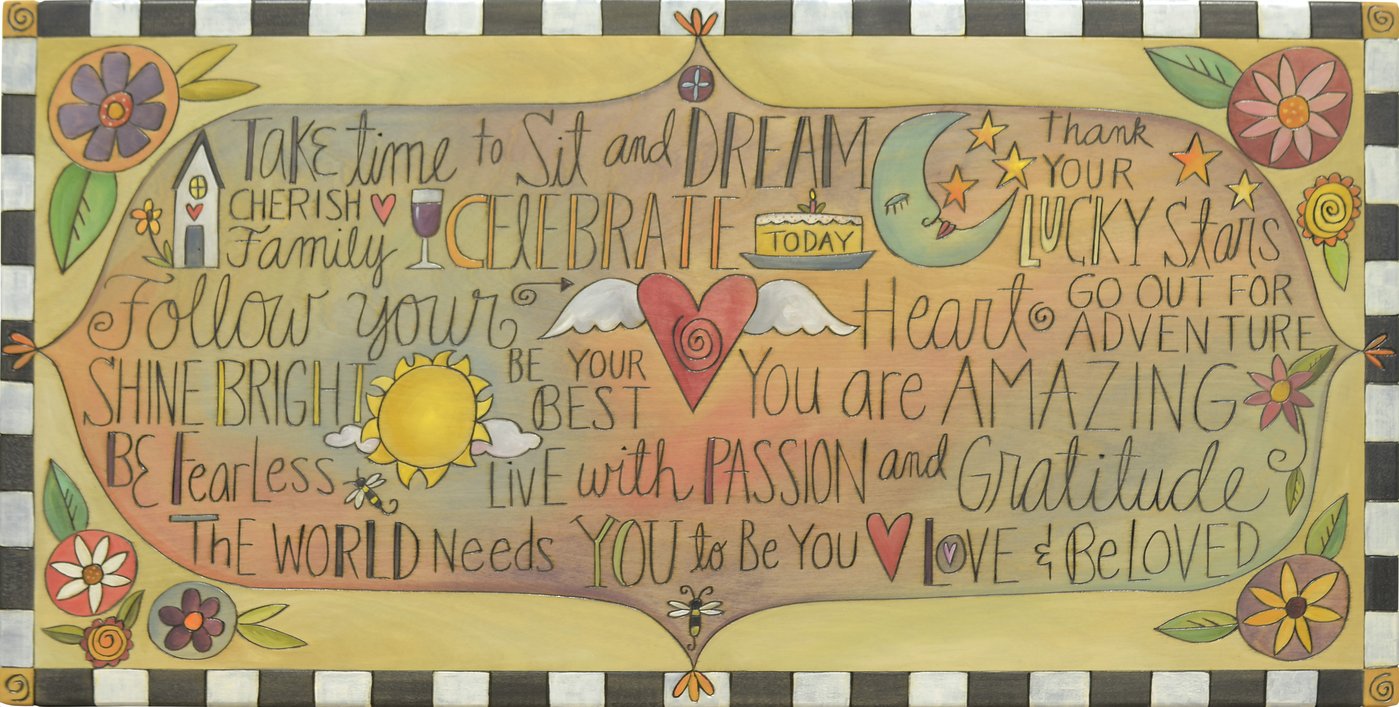 TAKE time to Sit and DREAM
thank YOUR
CHERISH Family
CElEBRATE
TODAY
LUCKY Stars
Follow your
Heart
GO OUT FOR ADVENTURE
SHINE BRIGHT
BE YOUR BEST
You are AMAZING
BE FearLess
LivE with PASSION and Gratitude
ThE WORLD Needs YOU to Be YOU
LOVE & BeLOVED